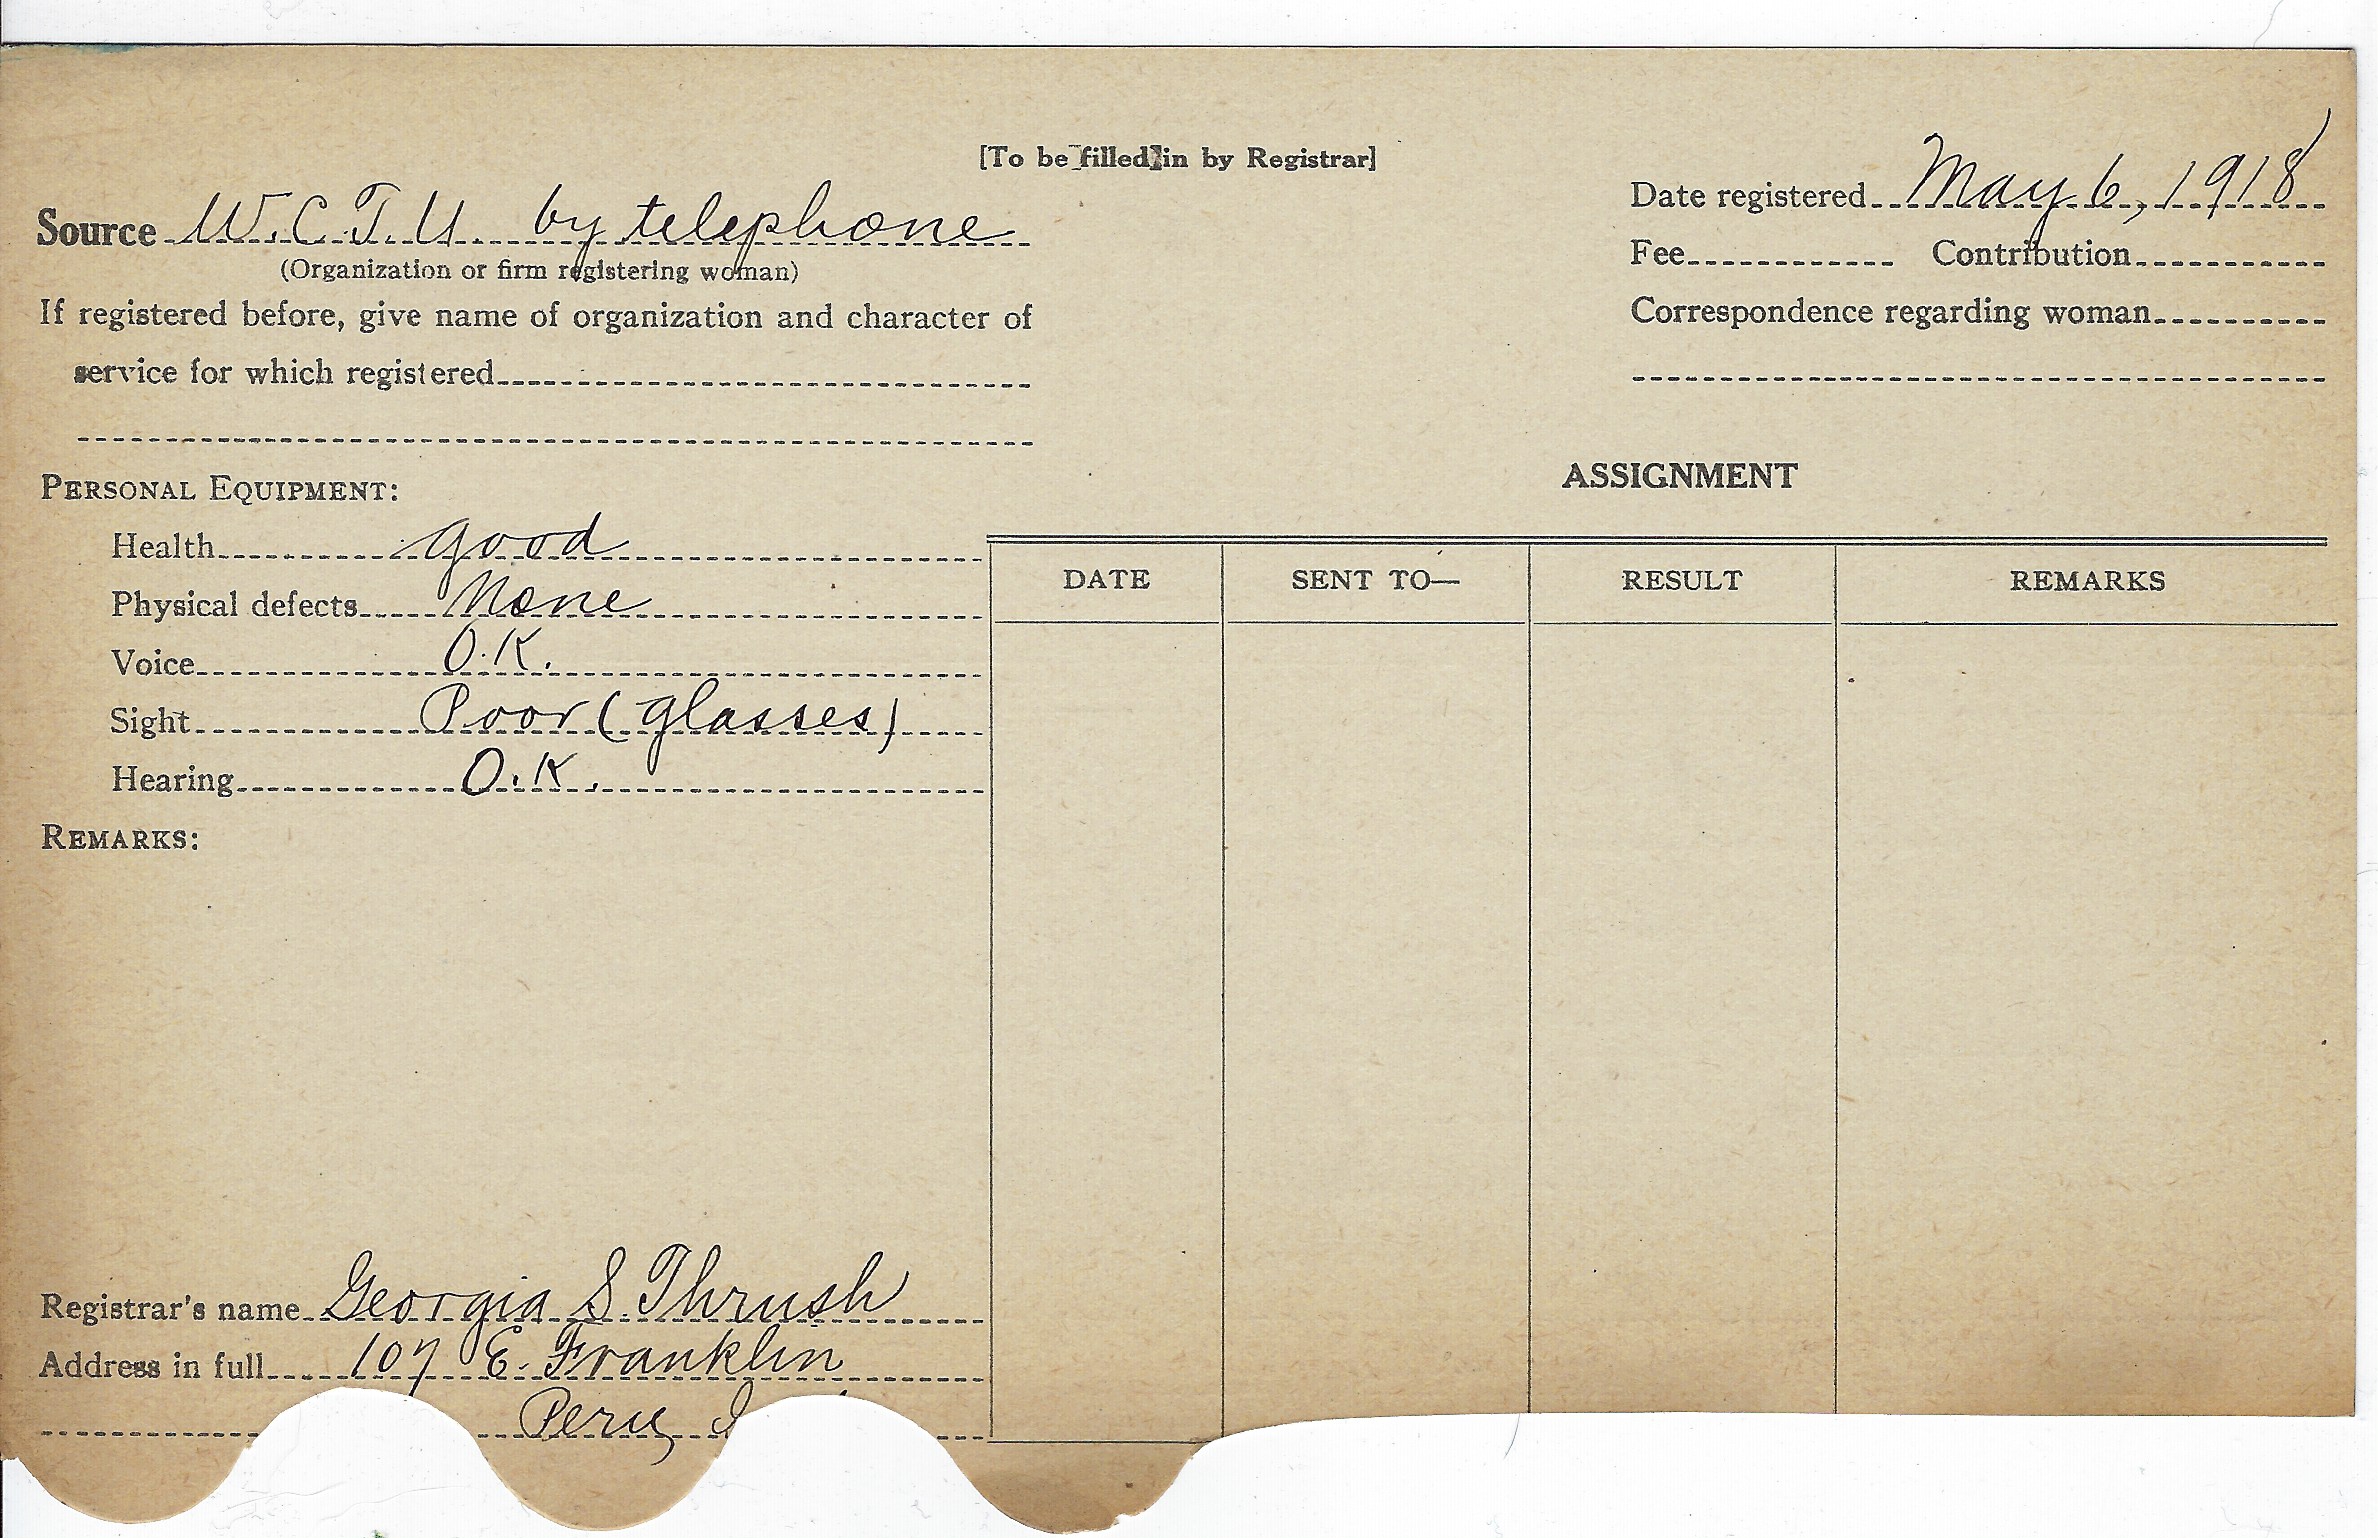 [To be filled in by Registrar]
Source W.C.T.U. by telephone
(Organization or firm registering woman)
If registered before, give name of organization and character of
service for which registered
Date registered May 6, 1918
Fee Contribution
Correspondence regarding woman
PERSONAL EQUIPMENT:
Health good
Physical defects None
Voice O.K.
Sight Poor (glasses)
Hearing O.K.
REMARKS:
ASSIGNMENT
DATE SENT TO— RESULT REMARKS
Registrar's name Georgia S. Thrush
Address in full 107 E. Franklin
Peru